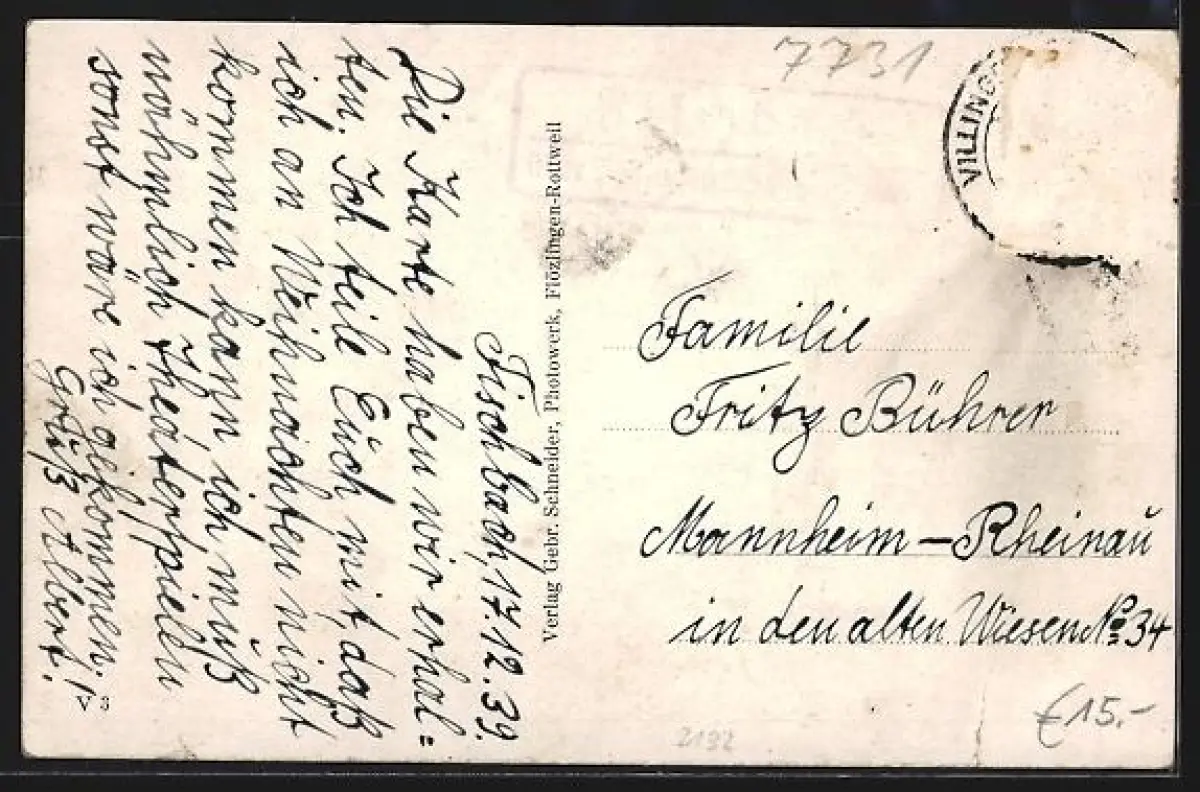 Fischbach, 17.12.39.
Die Karte haben wir erhal=
ten. Ich teile Euch mit daß
ich an Weihnachten nicht
kommen kann ich muß
nähmlich Theaterspielen
sonst wäre ich gekommen.
Grüß Albert!
V 3
Verlag Gebr. Schneider, Photowerk, Flözlingen-Rottweil
7731
VILLING
Familie
Fritz Bührer
Mannheim – Rheinau
in den alten Wiesen No 34
2192
€15.-